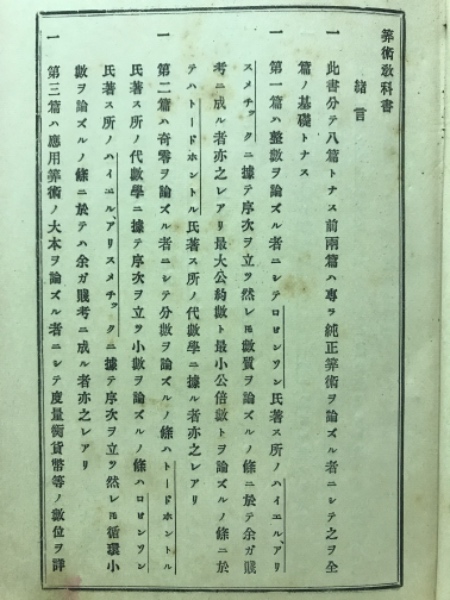 筭術敎科書
緖言
一 此書分テ八篇トナス前兩篇ハ專ラ純正筭術ヲ論ズル者ニシテ之ヲ全
篇ノ基礎トナス
一 第一篇ハ整數ヲ論ズル者ニシテロビンソン氏著ス所ノハイエル、アリ
スメチックニ據テ序次ヲ立ツ然レ𪜈數質ヲ論ズルノ條ニ於テ余ガ賤
考ニ成ル者亦之レアリ最大公約數ト最小公倍數トヲ論ズルノ條ニ於
テハトードホントル氏著ス所ノ代數學ニ據ル者亦之レアリ
一 第二篇ハ奇零ヲ論ズル者ニシテ分數ヲ論ズルノ條ハトードホントル
氏著ス所ノ代數學ニ據テ序次ヲ立ツ小數ヲ論ズルノ條ハロビンソン
氏著ス所ノハイエル、アリスメチックニ據テ序次ヲ立ツ然レ𪜈循環小
數ヲ論ズルノ條ニ於テハ余ガ賤考ニ成ル者亦之レアリ
一 第三篇ハ應用筭術ノ大本ヲ論ズル者ニシテ度量衡貨幣等ノ數位ヲ詳